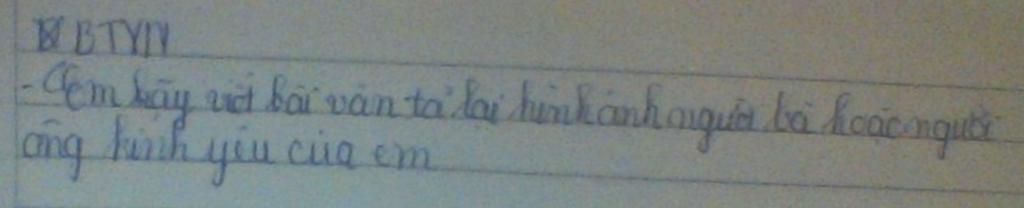 BTVN
- Em hãy viết bài văn tả lại hình ảnh người bà hoặc người
ông kính yêu của em